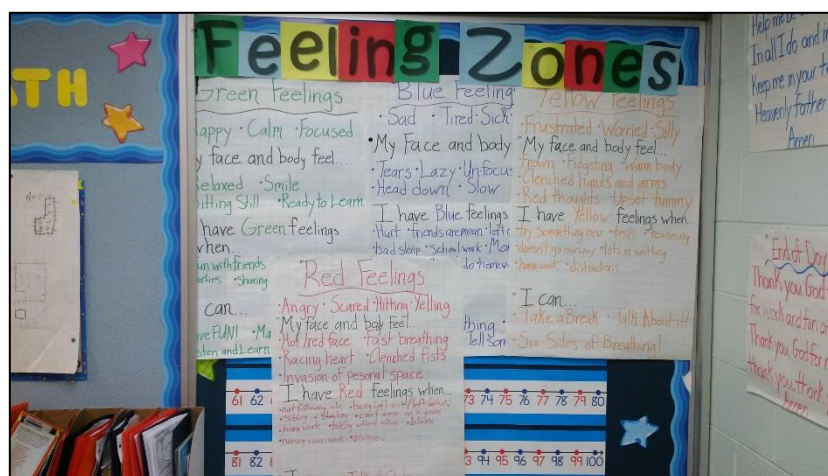 ATH
Feeling Zones
Green Feelings
Happy · Calm · Focused
y face and body feel...
Relaxed · Smile
Sitting Still · Ready to Learn
have Green feelings
when...
fun with friends
Sharing
can...
ave FUN! · Ma
sten and Learn
Blue Feeling
· Sad · Tired · Sick
· My Face and body
· Tears · Lazy · Unfocu
· Head down · Slow
I have Blue feelings
Hurt · friends are mean · left
bad sleep · school work · Mo
do homew
thing ·
Tell Som
Yellow Feelings
· Frustrated · Worried · Silly
My face and body feel...
· Frown · Fidgeting · Warm body
· Clenched hands and arms
· Red thoughts · Upset tummy
I have Yellow feelings when...
· try something new · tests · teasing
· doesn't go our way · lots of writting
· homework · distractions
I can...
· Take a Break · Talk About it!
· Six Sides of Breathing!
Red Feelings
· Angry · Scared · Hitting · Yelling
My face and body feel...
· Hot/red face · Fast breathing
· Racing heart · Clenched fists
· Invasion of pesonal space
I have Red feelings when...
· not following rules · being left out/
· Sibling · Stealing
· homework · taking without asking
61 62 73 74 75 76 77 78 79 80
81 82 93 94 95 96 97 98 99 100
Help me
In all I do and
Keep me in your
Heavenly Father
Amen
End of Day
Thank you God
for work and fun
Thank you God for
thank you, thank
Amen